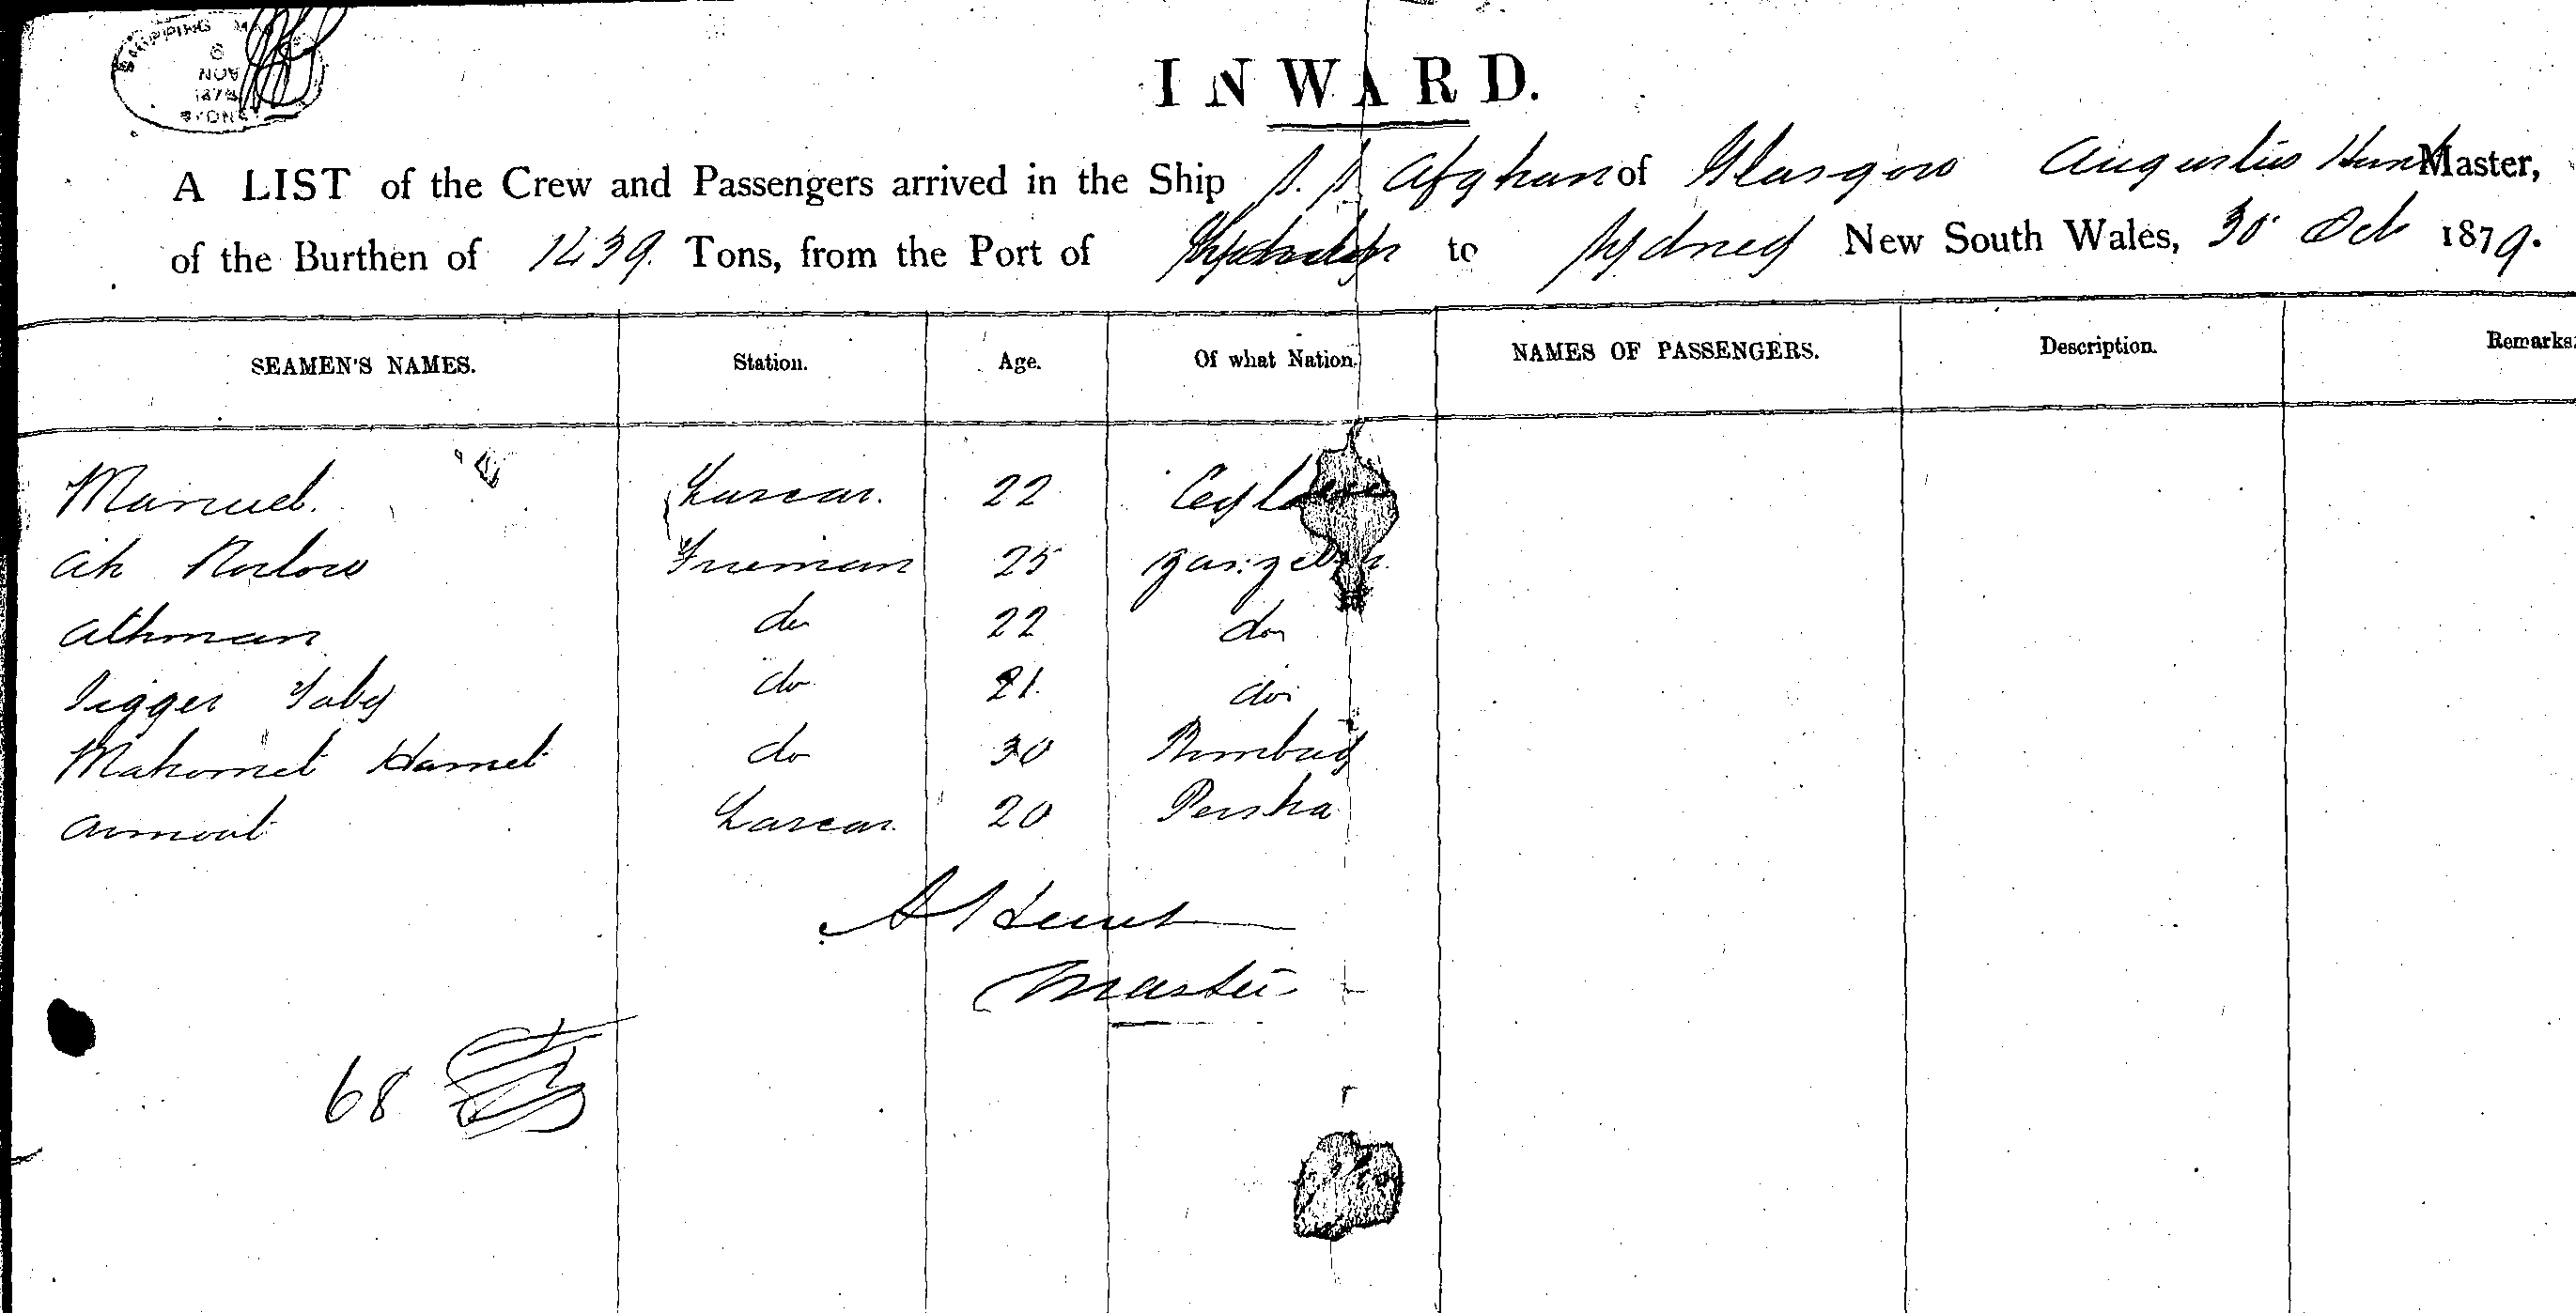 SHIPPING
6
NOV
SYDNEY
INWARD.
A LIST of the Crew and Passengers arrived in the Ship S. S Afghan of Glasgow Augustus Hunt Master,
of the Burthen of 1439 Tons, from the Port of to Sydney New South Wales, 30 Oct 1879.
SEAMEN'S NAMES. Station. Age. Of what Nation. NAMES OF PASSENGERS. Description. Remarks
Manuel. Lascar. 22 Ceylon
Ah Fireman 25
Athman do 22 do
do 21. do
Mahomet Hamet do 30 Bombay
Lascar. 20 Persha
A Hunt
Master
68